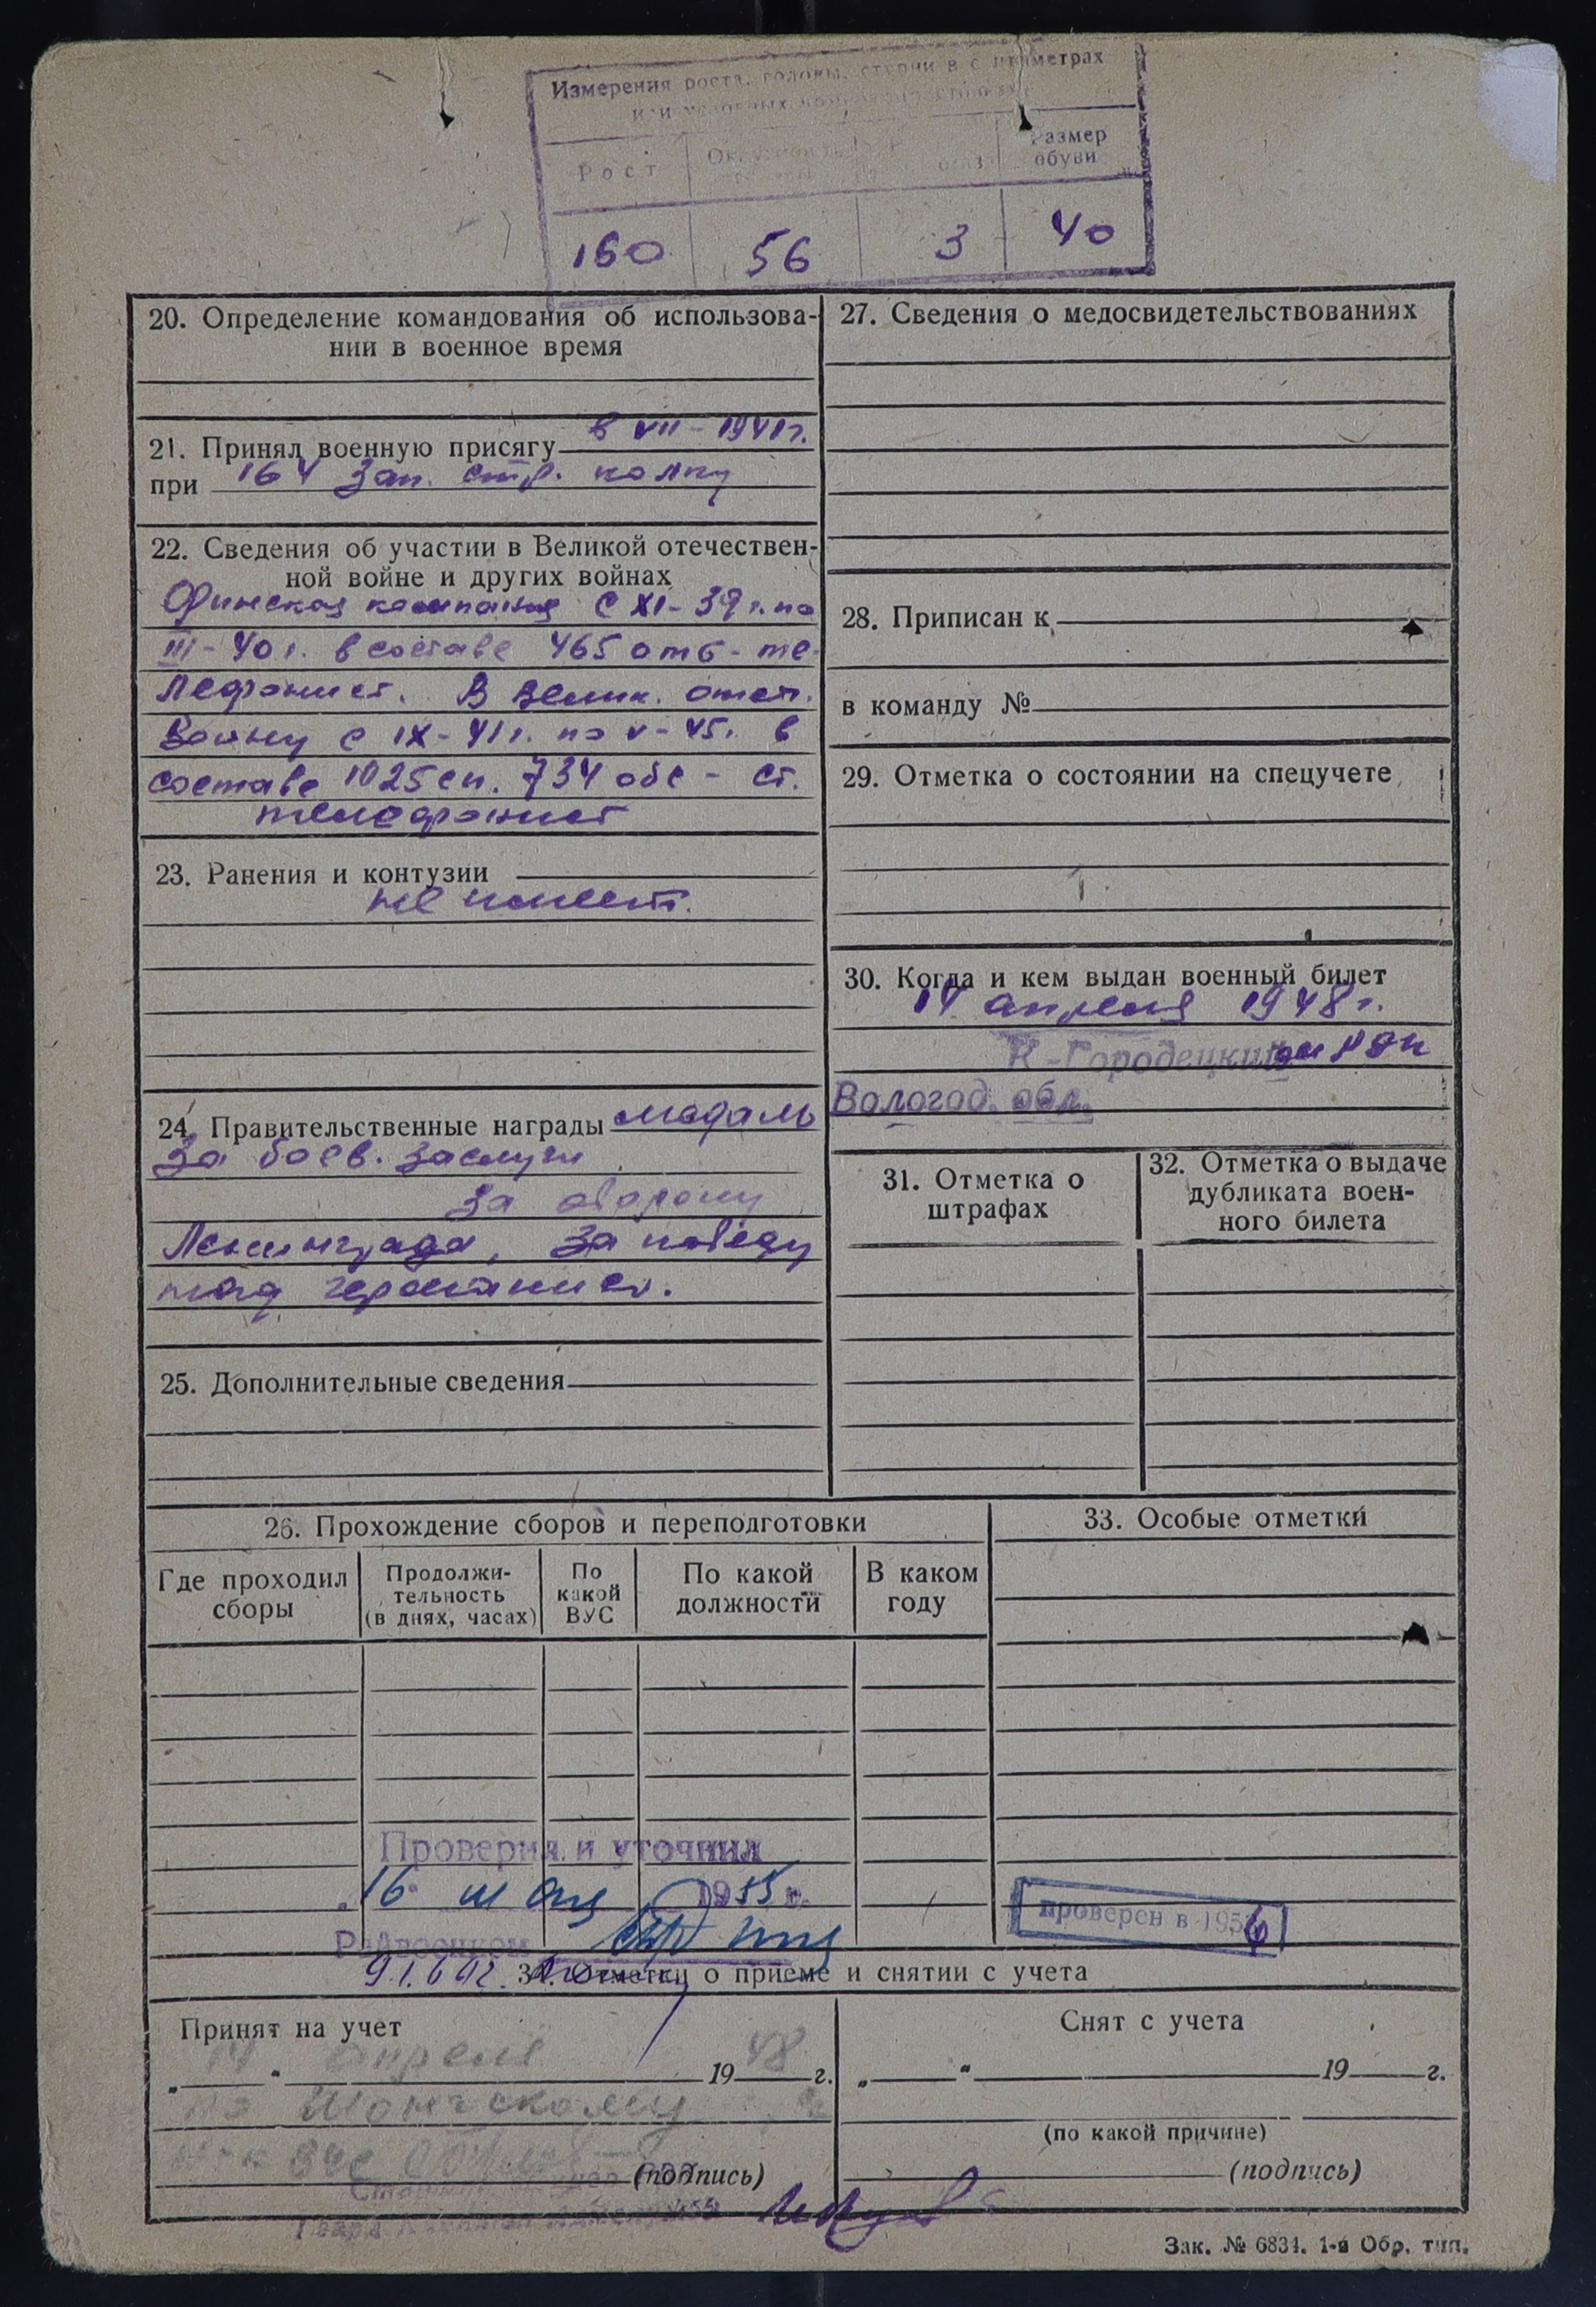 Измерения роста, головы, ступни в с нтиметрах
Рост
Размер
обуви
160 56 3 40
20. Определение командования об использова-
нии в военное время
21. Принял военную присягу в VII - 1941 г.
при 164 зап. стр. полку
22. Сведения об участии в Великой отечествен-
ной войне и других войнах
Финская кампания с XI - 39 г. по
III - 40 г. в составе 465 отб - те-
лефонист. В Велик. отеч.
войну с IX - 41 г. по V - 45 г. в
составе 1025 сп. 734 обс - ст.
телефонист
23. Ранения и контузии
не имеет.
24. Правительственные награды медаль
За боев. заслуги
За оборону
Ленинграда, За победу
над германией.
25. Дополнительные сведения
27. Сведения о медосвидетельствованиях
28. Приписан к
в команду №
29. Отметка о состоянии на спецучете
30. Когда и кем выдан военный билет
14 апреля 1948 г.
К-Городецким РВК
Вологод. обл.
31. Отметка о
штрафах
32. Отметка о выдаче
дубликата воен-
ного билета
26. Прохождение сборов и переподготовки
Где проходил
сборы
Продолжи-
тельность
(в днях, часах)
По
какой
ВУС
По какой
должности
В каком
году
33. Особые отметки
Проверил и уточнил
16 мая 1955 г.
Райвоенком
проверен в 1956
34. Отметки о приеме и снятии с учета
Принят на учет
„14“ апреля 1948 г.
(подпись)
Снят с учета
„ “ 19 г.
(по какой причине)
(подпись)
Зак. № 6834. 1-я Обр. тип.